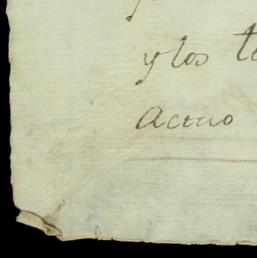 y los te
acero